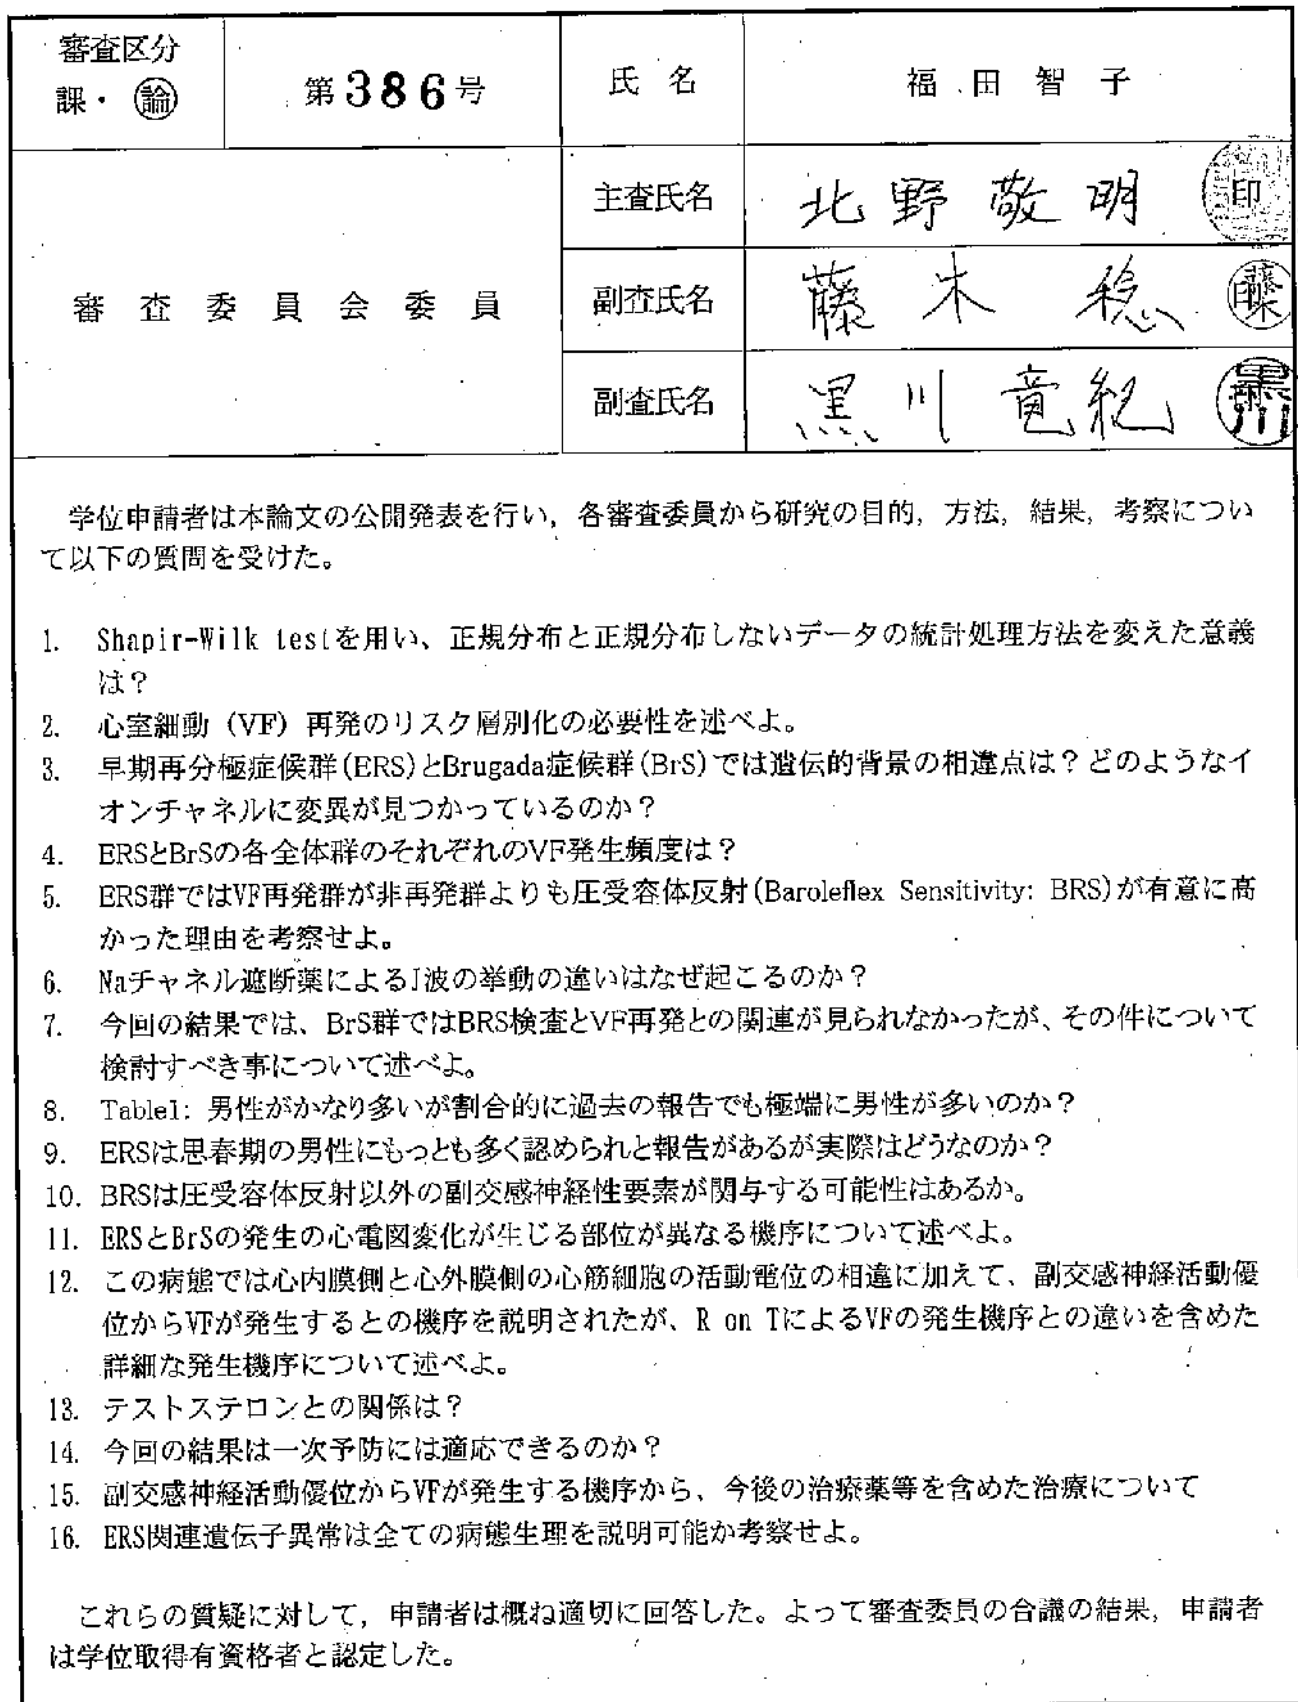 審査区分
課・論
第386号
氏 名
福 田 智 子
審 査 委 員 会 委 員
主査氏名
北野敬明 印
副査氏名
藤木 稔 印
副査氏名
黒川竜紀
学位申請者は本論文の公開発表を行い，各審査委員から研究の目的，方法，結果，考察につい
て以下の質問を受けた。
1. Shapir-Wilk testを用い、正規分布と正規分布しないデータの統計処理方法を変えた意義
は？
2. 心室細動（VF）再発のリスク層別化の必要性を述べよ。
3. 早期再分極症候群(ERS)とBrugada症候群(BrS)では遺伝的背景の相違点は？どのようなイ
オンチャネルに変異が見つかっているのか？
4. ERSとBrSの各全体群のそれぞれのVF発生頻度は？
5. ERS群ではVF再発群が非再発群よりも圧受容体反射(Baroleflex Sensitivity: BRS)が有意に高
かった理由を考察せよ。
6. Naチャネル遮断薬によるJ波の挙動の違いはなぜ起こるのか？
7. 今回の結果では、BrS群ではBRS検査とVF再発との関連が見られなかったが、その件について
検討すべき事について述べよ。
8. Table1: 男性がかなり多いが割合的に過去の報告でも極端に男性が多いのか？
9. ERSは思春期の男性にもっとも多く認められと報告があるが実際はどうなのか？
10. BRSは圧受容体反射以外の副交感神経性要素が関与する可能性はあるか。
11. ERSとBrSの発生の心電図変化が生じる部位が異なる機序について述べよ。
12. この病態では心内膜側と心外膜側の心筋細胞の活動電位の相違に加えて、副交感神経活動優
位からVFが発生するとの機序を説明されたが、R on TによるVFの発生機序との違いを含めた
詳細な発生機序について述べよ。
13. テストステロンとの関係は？
14. 今回の結果は一次予防には適応できるのか？
15. 副交感神経活動優位からVFが発生する機序から、今後の治療薬等を含めた治療について
16. ERS関連遺伝子異常は全ての病態生理を説明可能か考察せよ。
これらの質疑に対して，申請者は概ね適切に回答した。よって審査委員の合議の結果，申請者
は学位取得有資格者と認定した。